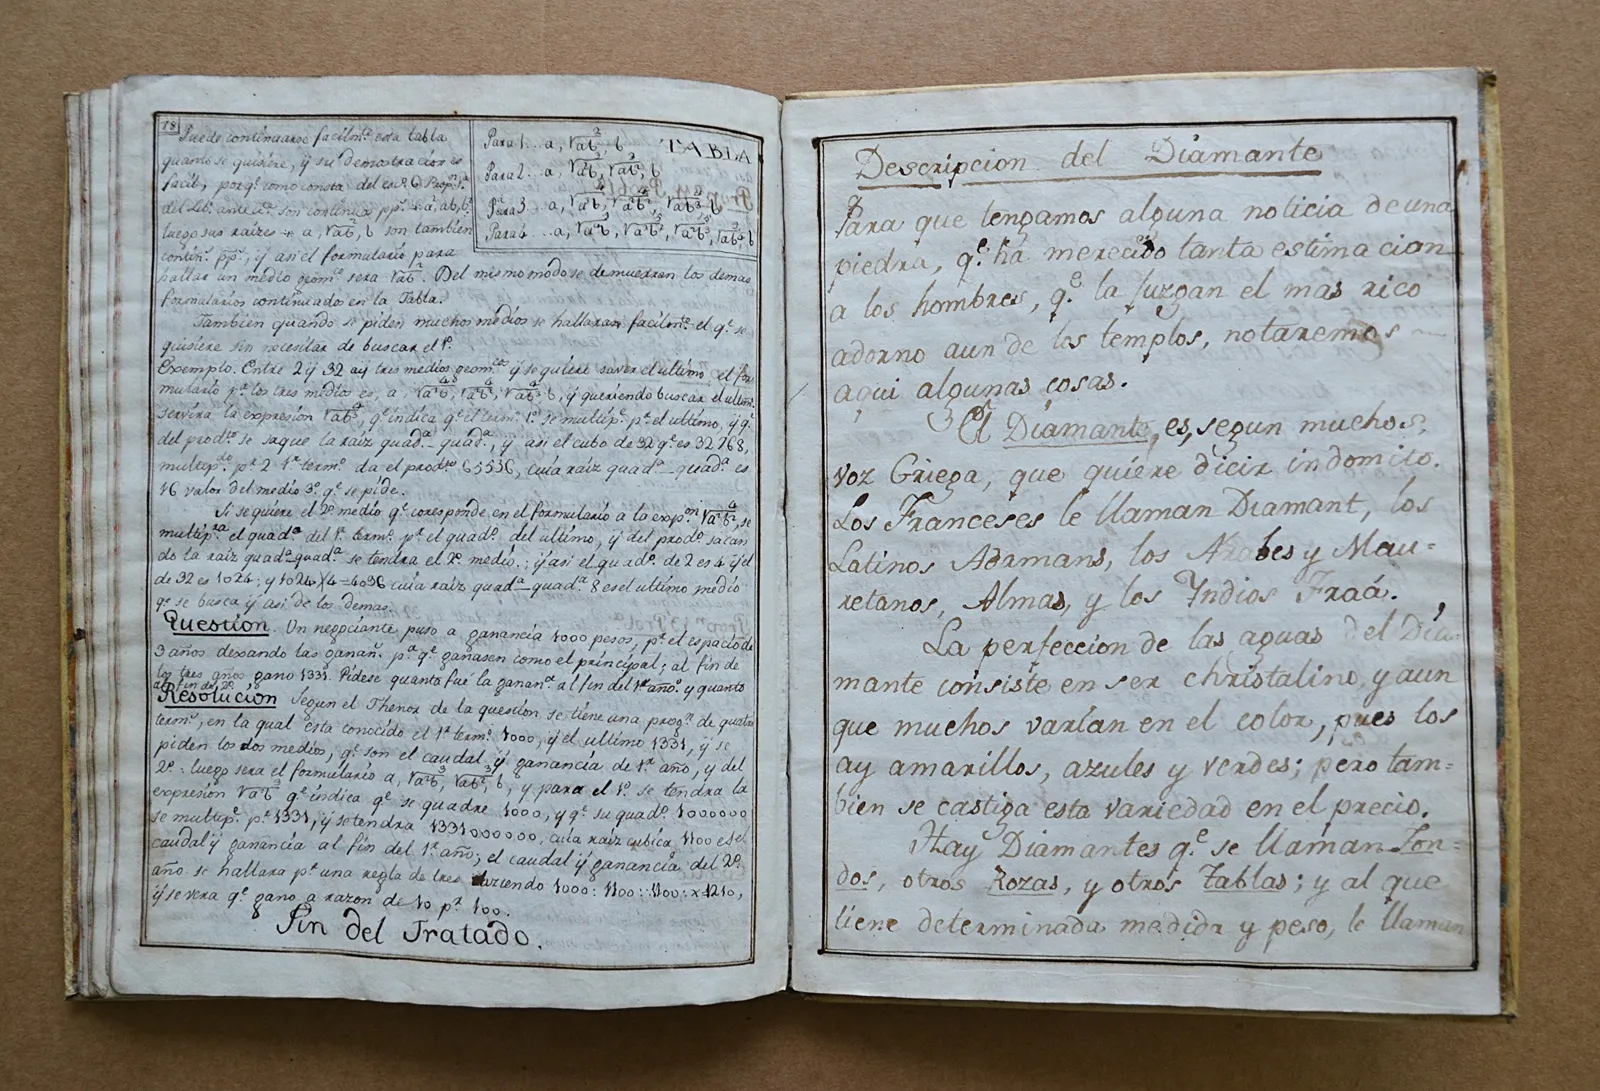 78
Puede continuarse facilm.te esta tabla
quanto se quisiere, y su demostracion es
facil, porq.e como consta del
del Lib. antec.te son continuas pp.s ÷ a², ab, b²
luego sus raizes ÷ a, √ab, b son tambien
contin. pp.s, y asi el formulario para
hallar un medio geom.co sera √ab. Del mismo modo se demuestran los demas
formularios continuados en la Tabla.
TABLA
Para 1... a, √ab, b
Para 2... a, √a²b, √ab², b
P.a 3... a, √a³b, √a²b², √ab³, b
Para 4... a, √a⁴b, √a³b², √a²b³, √ab⁴, b
Tambien quando se piden muchos medios se hallaran facilm.te el q.e se
quisiere sin necesitar de buscar el 1.º
Exemplo. Entre 2 y 32 ay tres medios geom.cos y se quiere saver el ultimo, el for
mulario p.a los tres medios es, a, √a³b, √a²b², √ab³, b, y queriendo buscar el ultim.
servira la expresion √ab³, q.e indica q.e el term. 1.º se multip.e p.r el ultimo, y q.e
del prod.to se saque la raiz quad.a quad.a, y asi el cubo de 32 q.e es 32768,
multip.do p.r 2 1.r term.o da el prod.to 65536, cuia raiz quad.a quad.a es
16 valor del medio 3.º q.e se pide.
Si se quiere el 2.º medio q.e coresponde en el formulario a la exp.on √a²b², se
multip.ra el quad.o del 1.r term.o p.r el quad.o del ultimo, y del prod.o sacan
do la raiz quad.a quad.a se tendra el 2.º medio; y asi el quad.o de 2 es 4 y el
de 32 es 1024; y 1024 X 4 = 4096 cuia raiz quad.a quad.a 8 es el ultimo medio
q.e se busca y asi de los demas.
Question. Un negociante puso a ganancia 1000 pesos, p.r el espacio de
3 años dexando las ganan.s p.a q.e ganasen como el principal; al fin de
los tres años gano 1331. Pidese quanta fué la ganan.a al fin del 1.r año y quanto
al fin de 2.º
Resolucion Segun el Thenor de la question se tiene una prog.n de quatro
term.s, en la qual esta conocido el 1.r term.o 1000, y el ultimo 1331, y se
piden los dos medios, q.e son el caudal y ganancia de 1.r año, y del
2.º luego sera el formulario a, √a²b, √ab², b, y para el 1.º se tendra la
expresion √a²b q.e indica q.e se quadre 1000, y q.e su quad.o 1000000
se multip.e p.r 1331, y se tendra 1331000000, cuia raiz cubica 1100 es el
caudal y ganancia al fin del 1.r año; el caudal y ganancia del 2.º
año se hallara p.r una regla de tres haziendo 1000: 1100 :: 1100: x = 1210,
y se vera q.e gano a razon de 10 p.r 100.
Fin del Tratado.
Descripcion del Diamante
Para que tengamos alguna noticia de una
piedra, q.e ha merecido tanta estimacion
a los hombres, q.e la juzgan el mas rico
adorno aun de los templos, notaremos
aqui algunas cosas.
El Diamante, es, segun muchos,
voz Griega, que quiere dicir indomito.
Los Franceses le llaman Diamant, los
Latinos Adamans, los Arabes y Mau=
retanos, Almas, y los Yndios Fraá.
La perfeccion de las aguas del Dia=
mante consiste en ser christalino, y aun
que muchos varian en el color, pues los
ay amarillos, azules y verdes; pero tam=
bien se castiga esta variedad en el precio.
Hay Diamantes q.e se llaman Fon=
dos, otros Rozas, y otros Tablas; y al que
tiene determinada medida y peso, le llaman